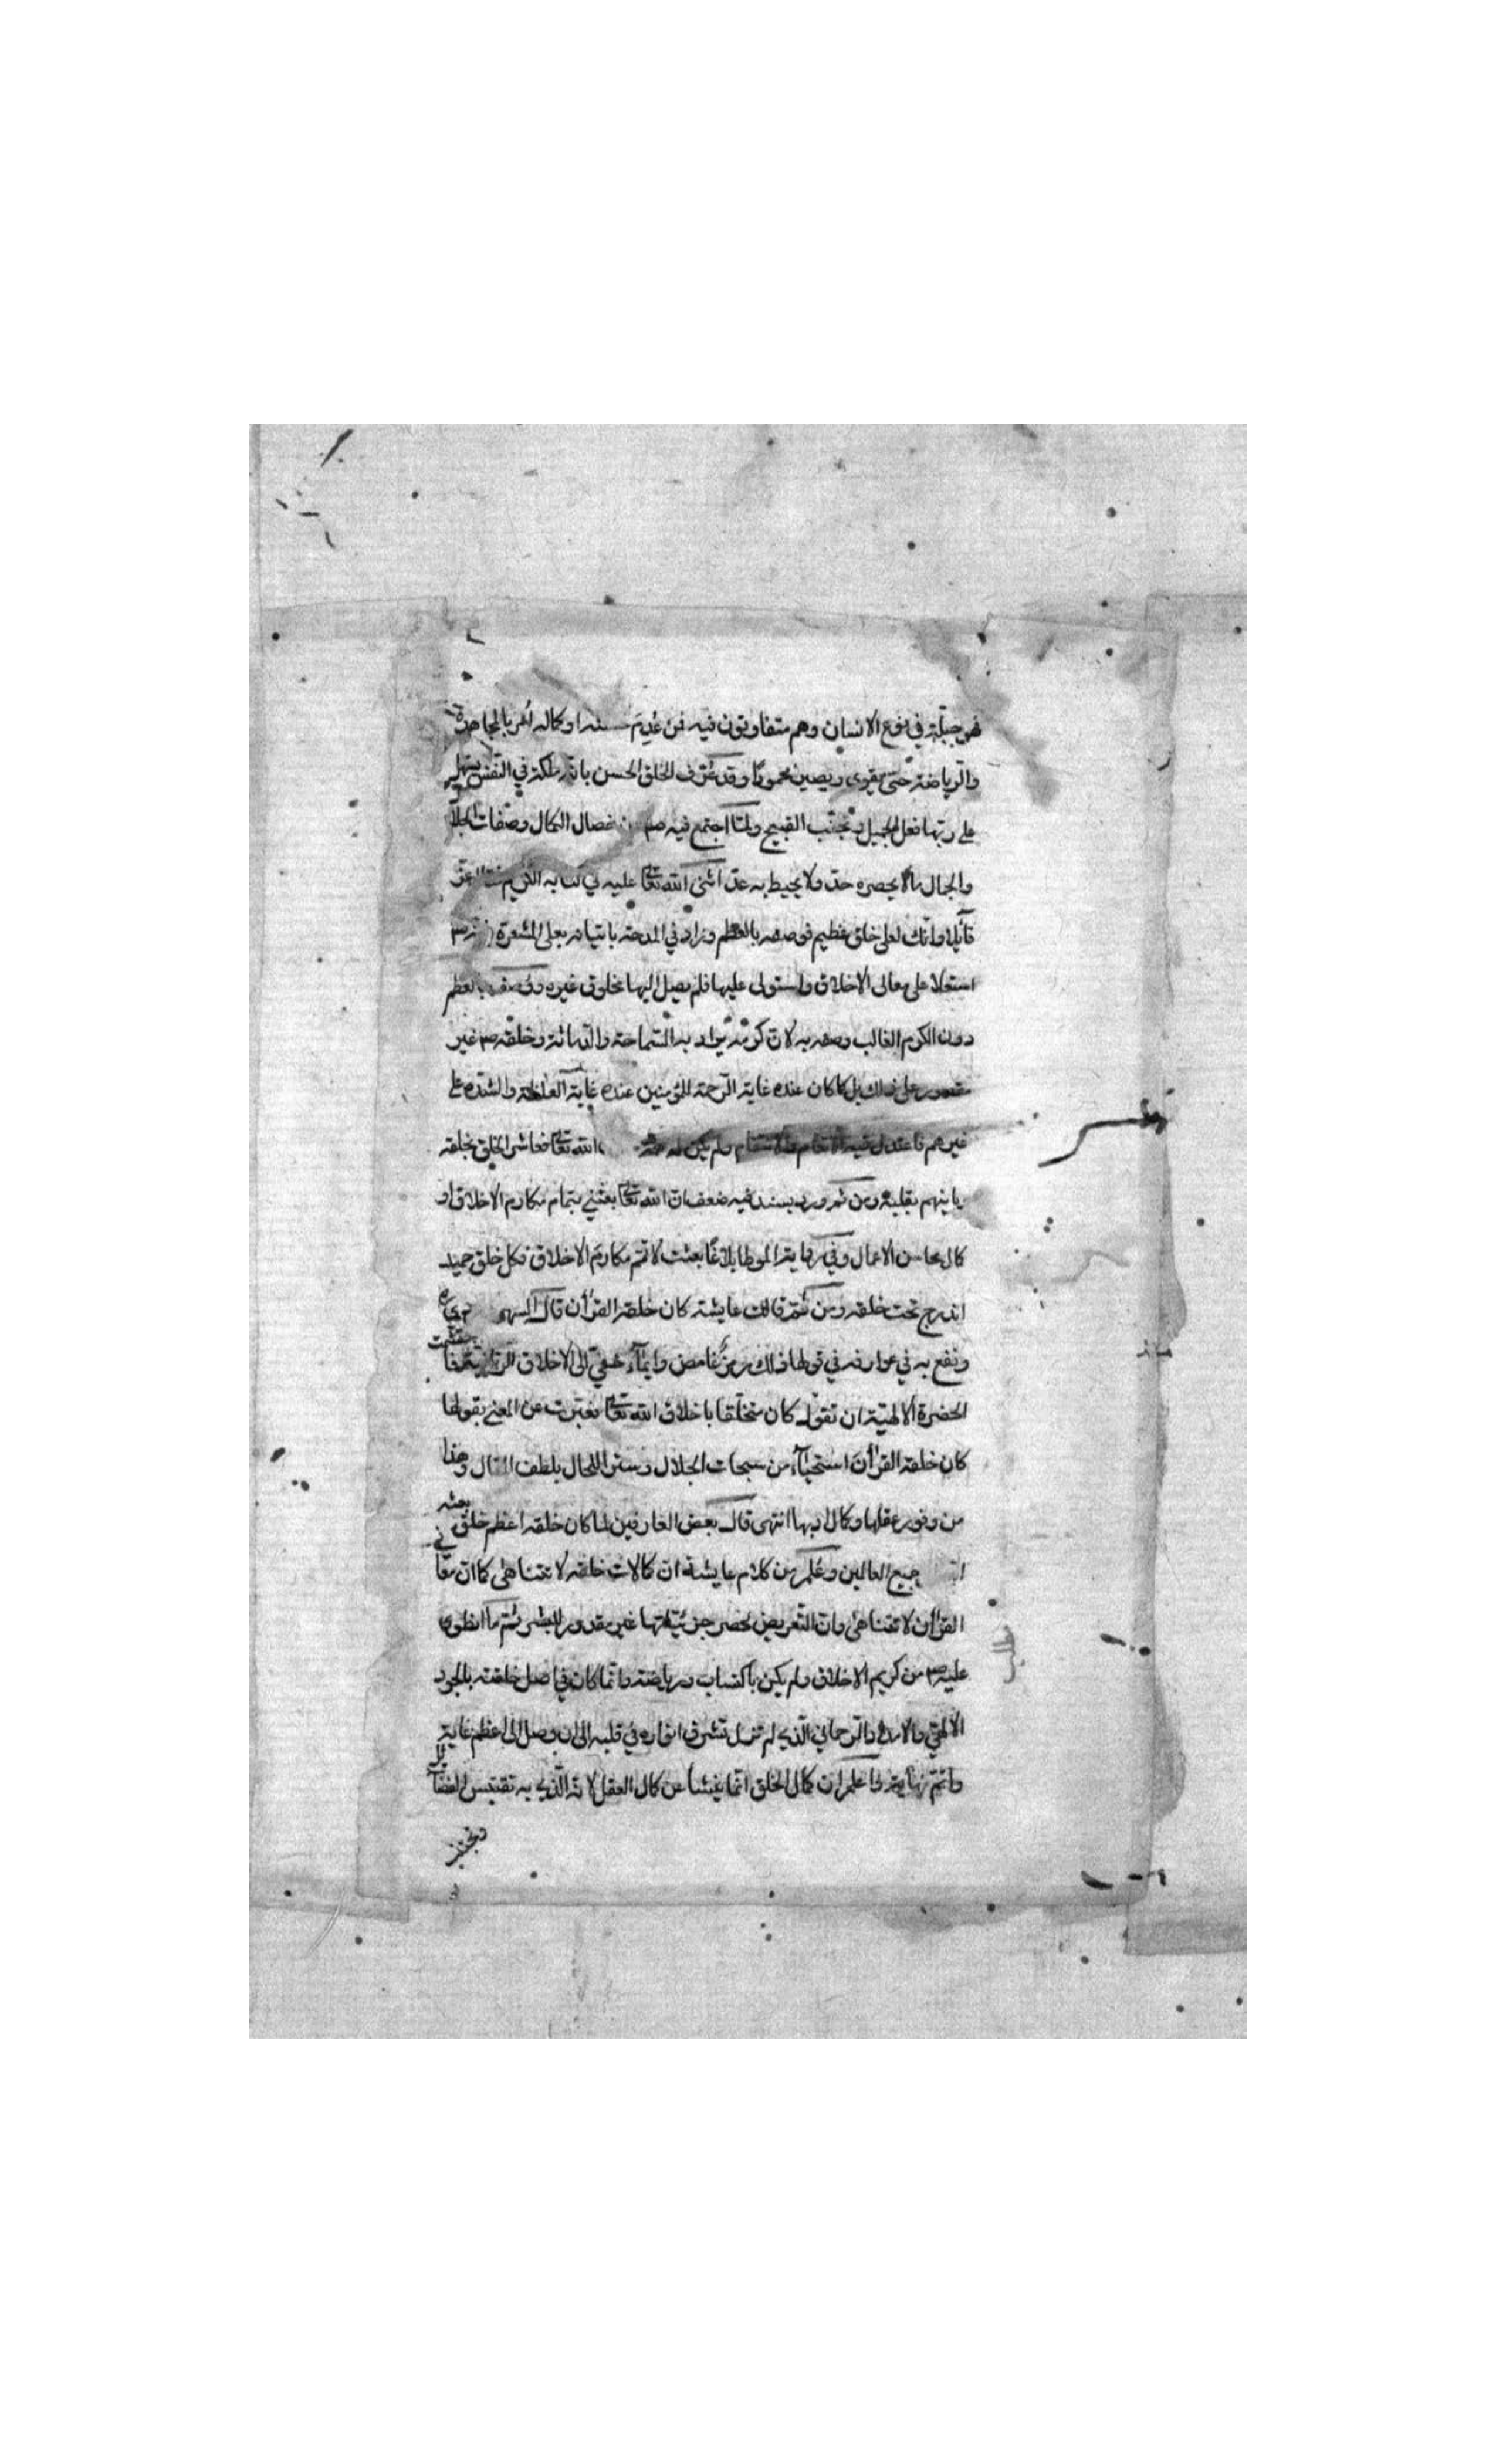 فهو جبلة في نوع الانسان وهم متفاوتون فيه فمن عدم حسنه او كماله أمر بالمجاهدة
والرياضة حتى يقوى ويصير محمودا وقد عرف الخلق الحسن بانه ملكة في النفس يسهل
على ربها فعل الجميل وتجنب القبيح ولما اجتمع فيه صم خصال الكمال وصفات الجلا
والجمال مالا يحصره حد ولا يحيط به عد اثنى الله تعا عليه في كتابه الكريم
قائلا وانك لعلى خلق عظيم فوصفه بالعظم وزاد في المدحة باتيانه بعلى المشعرة
استعلا على معالى الاخلاق واستولى عليها فلم يصل اليها مخلوق غيره ووصف بالعظم
دون الكرم الغالب وصفه به لان كرمه يراد به السماحة والدماثة وخلقه صم غير
مقصور على ذلك بل كما كان عنده غاية الرحمة للمؤمنين عنده غاية الغلظة والشدة على
غيرهم فاعتدل فيه الانعام والانتقام ولم يكن له الله تعا فعاشر الخلق بخلقه
باينهم بقلبه ومن ثم ورد بسند فيه ضعف ان الله تعا بعثني بتمام مكارم الاخلاق و
كمال محاسن الاعمال وفي رواية الموطا بلاغا بعثت لاتمم مكارم الاخلاق فكل خلق حميد
اندرج تحت خلقه ومن ثم قالت عايشة كان خلقه القرأن قال السهروردي
ونفع به في عوارفه في قولها ذلك رمز غامض وايمآء خفي الى الاخلاق الربانية
الحضرة الالهية ان تقول كان متخلقا باخلاق الله تعا فعبرت عن المعنى بقولها
كان خلقه القرأن استحيآء من سبحات الجلال وستر اللحال بلطف المقال وهذا
من وفور عقلها وكمال ادبها انتهى قال بعض العارفين لما كان خلقه اعظم خلق بعثه
جميع العالمين وعلم من كلام عايشة ان كمالات خلقه لا تتناهى كما ان معا في
القرأن لا تتناهى وان التعريض لحصر جزئياتها غير مقدور للبشر ثم ما انطوى
عليه صم من كريم الاخلاق ولم يكن باكتساب ورياضة وانما كان في اصل خلقته بالجود
الالهي والامداد الرحماني الذي لم تزل تشرق انواره في قلبه الى ان وصل الى اعظم غاية
واتم نهاية اعلم ان كمال الخلق انما ينشأ عن كمال العقل لانه الذي به تقتبس الفضا